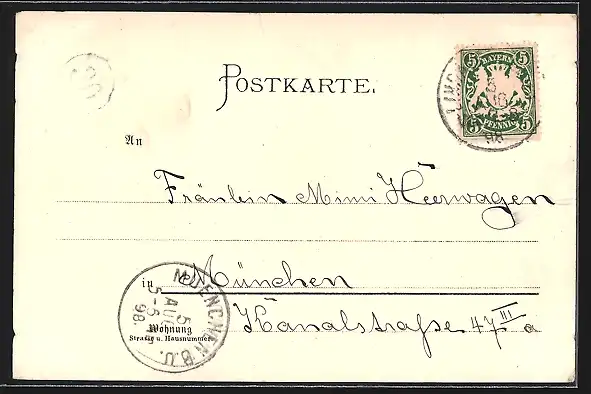 POSTKARTE.
5 BAYERN 5
5 PFENNIG 5
5
98
An
Fräulein Mimi Heerwagen
in München
MUENCHEN B.U.
5
AUG
5-6
98.
Wohnung
Straße u. Hausnummer
Kanalstraße 47 III a